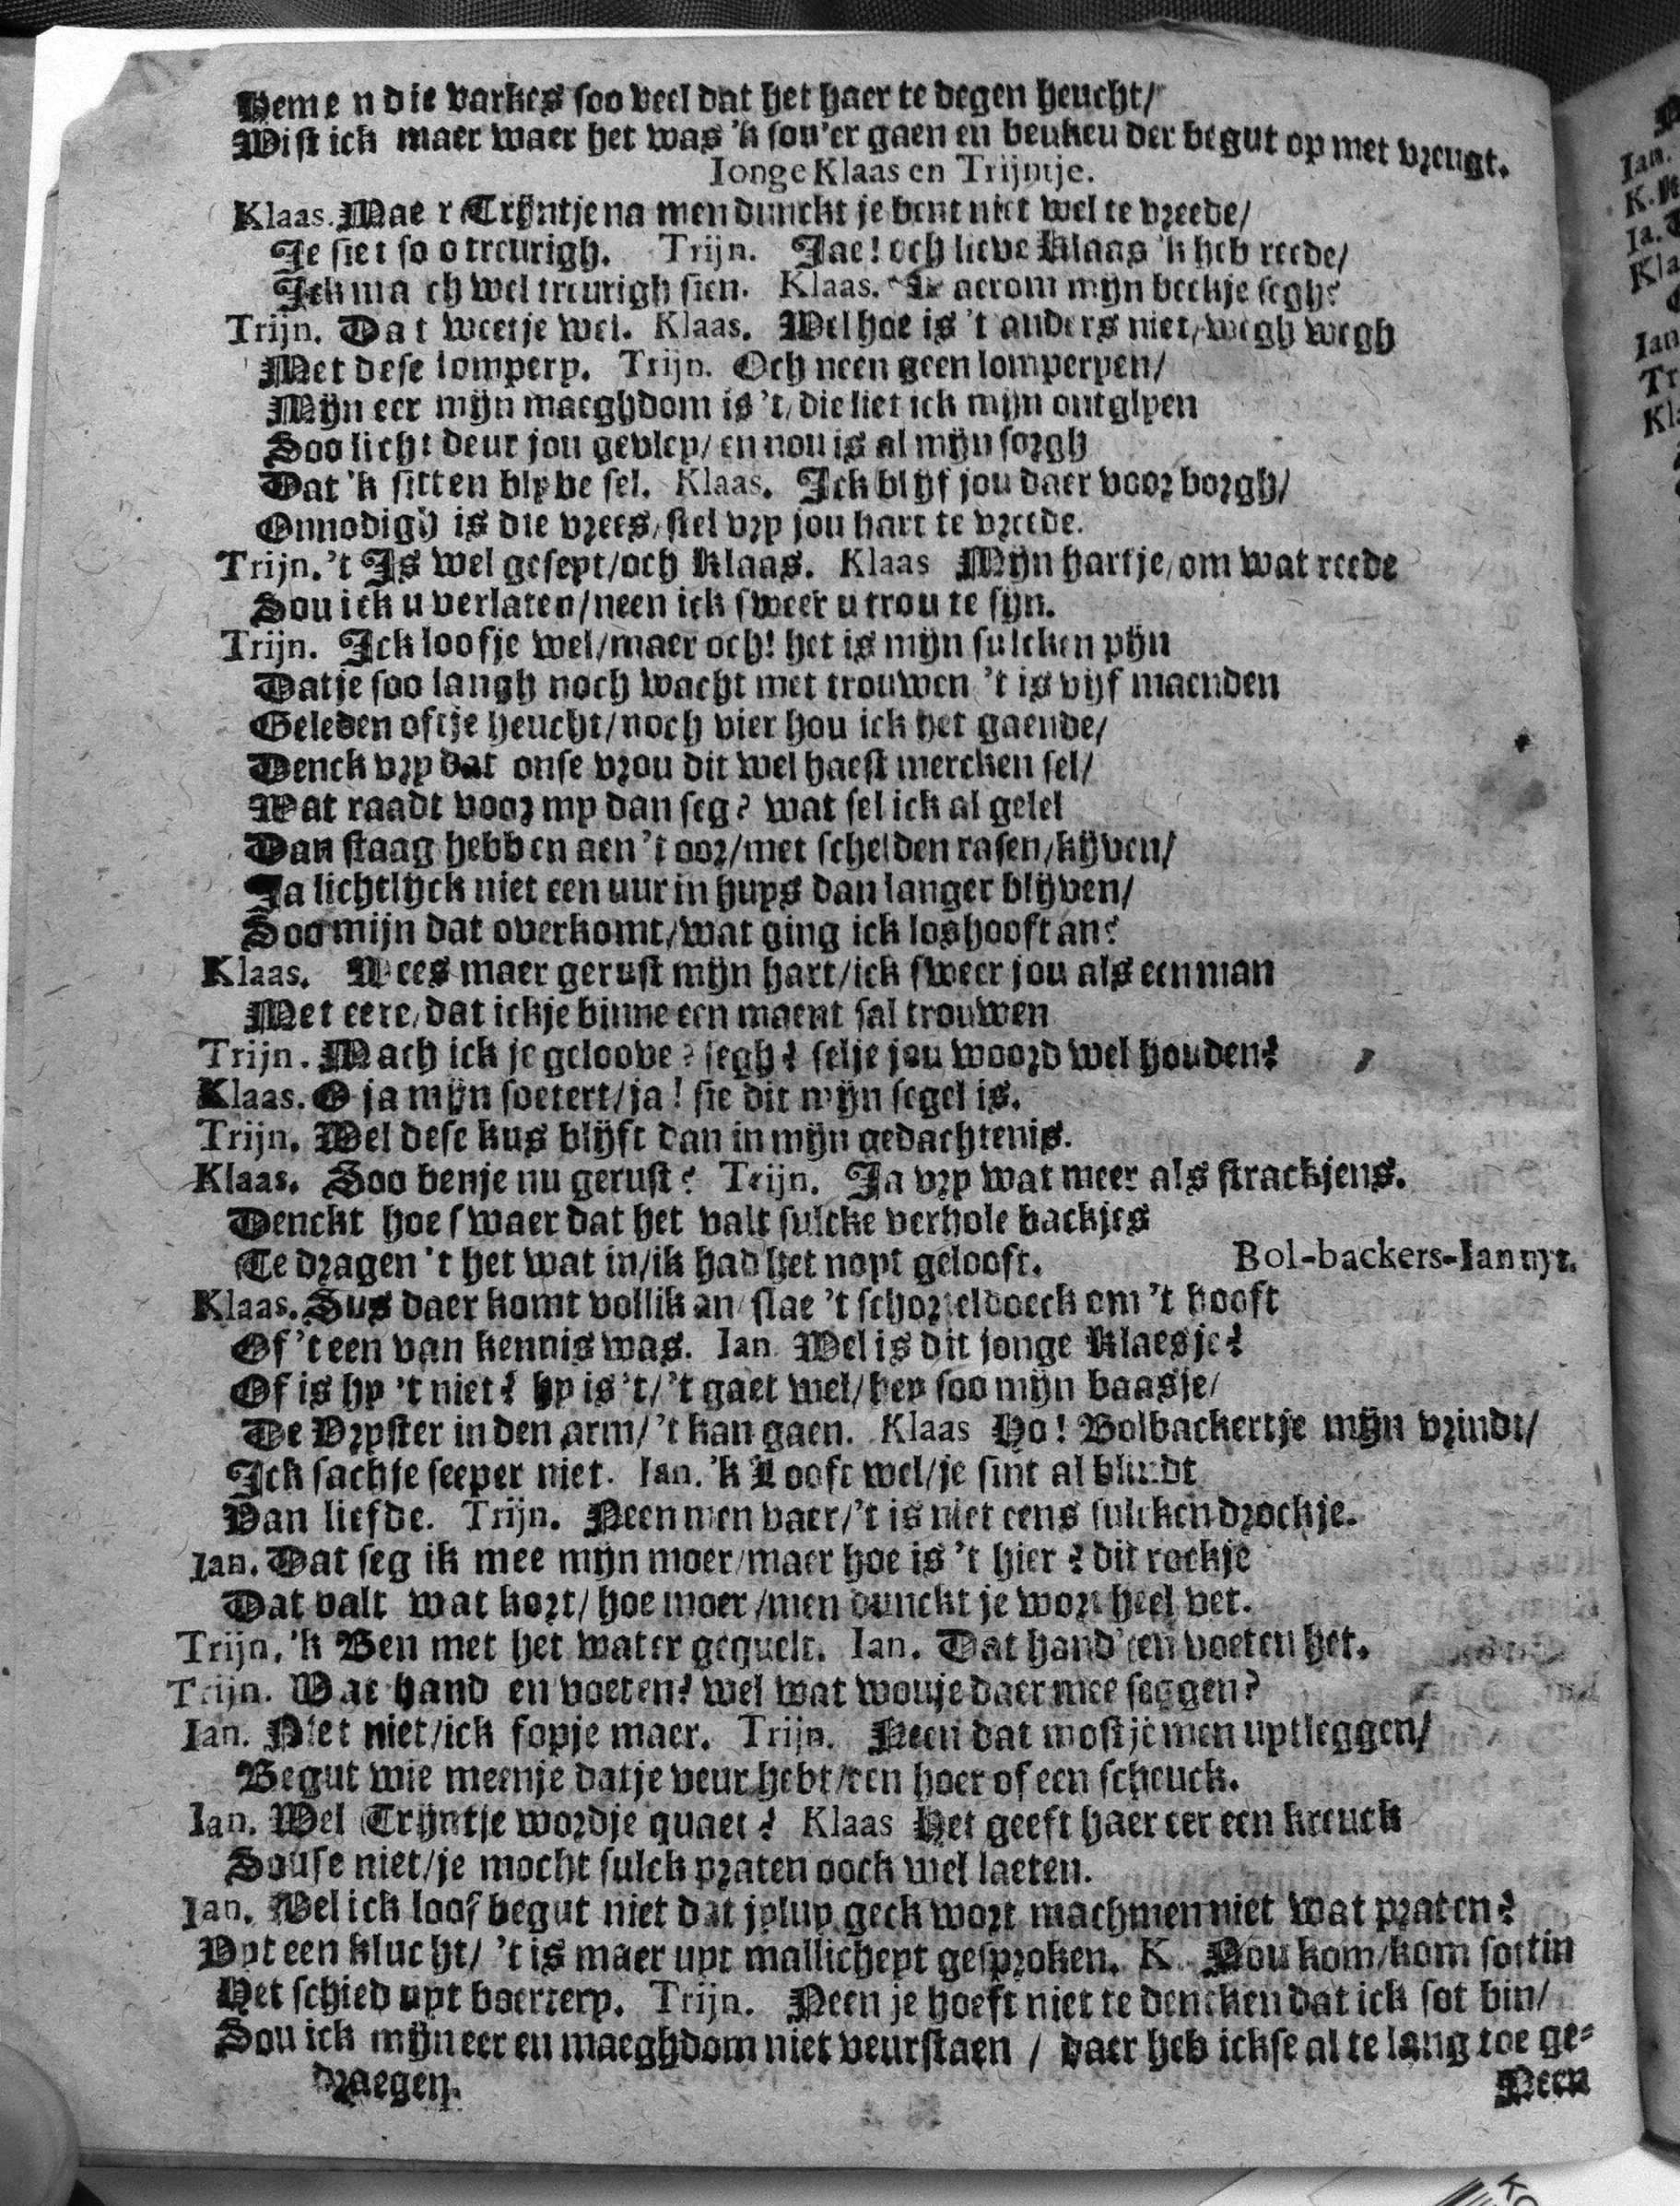 Heme n die varkes soo veel dat het haer te degen heucht/
Wist ick maer waer het was 'k sou'er gaen en beukeu der begut op met vreugt.
Ionge Klaas en Trijntje.
Klaas. Mae r Trijntje na men dunckt je bent niet wel te vreede/
Je siet so o treurigh. Trijn. Jae! och lieve Klaas 'k heb reede/
Ick ma ch wel treurigh sien. Klaas. Waerom mijn beckje segh?
Trijn. Da t weetje wel. Klaas. Wel hoe is 't anders niet/wegh wegh
Met dese lompery. Trijn. Och neen geen lomperyen/
Mijn eer mijn maeghdom is 't/die liet ick mijn ontglyen
Soo licht deur jou gevley/en nou is al mijn sorgh
Dat 'k sitten blyve sel. Klaas. Ick blijf jou daer voor borgh/
Onnodigh is die vrees/stel vry jou hart te vreede.
Trijn. 't Is wel geseyt/och Klaas. Klaas Mijn hartje/om wat reede
Sou ick u verlaten/neen ick sweer u trou te sijn.
Trijn. Ick loofje wel/maer och! het is mijn sulcken pijn
Datje soo langh noch wacht met trouwen 't is vijf maenden
Geleden oftje heucht/noch vier hou ick het gaende/
Denck vry dat onse vrou dit wel haest mercken sel/
Wat raadt voor my dan seg? wat sel ick al gelel
Dan staag hebben aen 't oor/met schelden rasen/kijven/
Ja lichtlijck niet een uur in huys dan langer blijven/
Soo mijn dat overkomt/wat ging ick loshooft an?
Klaas. Wees maer gerust mijn hart/ick sweer jou als een man
Met eere/dat ickje binne een maent sal trouwen
Trijn. Mach ick je geloove? segh? selje jou woord wel houden?
Klaas. O ja mijn soetert/ja! sie dit mijn segel is.
Trijn. Wel dese kus blijft dan in mijn gedachtenis.
Klaas. Soo benje nu gerust? Trijn. Ja vry wat meer als strackjens.
Denckt hoe swaer dat het valt sulcke verhole backjes
Te dragen 't het wat in/ik had het noyt gelooft. Bol-backers-Ian uyt.
Klaas. Sus daer komt vollik an/slae 't schorteldoeck om 't hooft
Of 't een van kennis was. Ian Wel is dit jonge Klaesje?
Of is hy 't niet? hy is 't/'t gaet wel/hey soo mijn baasje/
De Vryster in den arm/'t kan gaen. Klaas Ho! Bolbackertje mijn vrindt/
Ick sachje seeper niet. Ian. 'k Looft wel/je sint al blindt
Van liefde. Trijn. Neen men vaer/'t is niet eens sulcken drockje.
Ian. Dat seg ik mee mijn moer/maer hoe is 't hier? dit rockje
Dat valt wat kort/hoe moer/men dunckt je wort heel vet.
Trijn. 'k Ben met het water gequelt. Ian. Dat hand en voeten het.
Trijn. Wat hand en voeten? wel wat wouje daer mee seggen?
Ian. Niet niet/ick fopje maer. Trijn. Neen dat mostje men uytleggen/
Begut wie meenje datje veur hebt/een hoer of een scheuck.
Ian. Wel Trijntje wordje quaet? Klaas Het geeft haer eer een kreuck
Souse niet/je mocht sulck praten oock wel laeten.
Ian. Wel ick loof begut niet dat jylup geck wort machmen niet wat praten?
Uyt een klucht/'t is maer uyt mallicheyt gesproken. K. Nou kom/kom sottin
Het schied uyt boerterp. Trijn. Neen je hoeft niet te dencken dat ick sot bin/
Sou ick mijn eer en maeghdom niet veurstaen / daer heb ickse al te lang toe ge-
draegen.
Neen